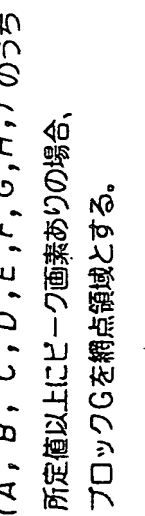 (A, B, C, D, E, F, G, H, ) のうち
所定値以上にピーク画素ありの場合、
ブロックGを網点領域とする。